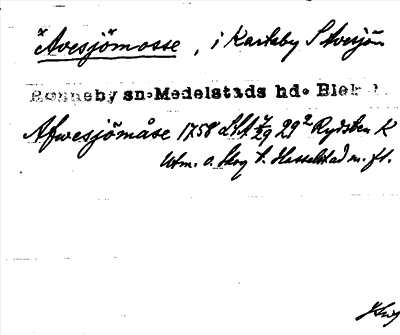 "Avesjömosse", i Karlsby S Avesjön
Ronneby sn. Medelstads hd. Blek.
Afwesjömåse 1758 LSA 29² Rydsten K
Utm. o. Skog t. Hesselstad m. fl.